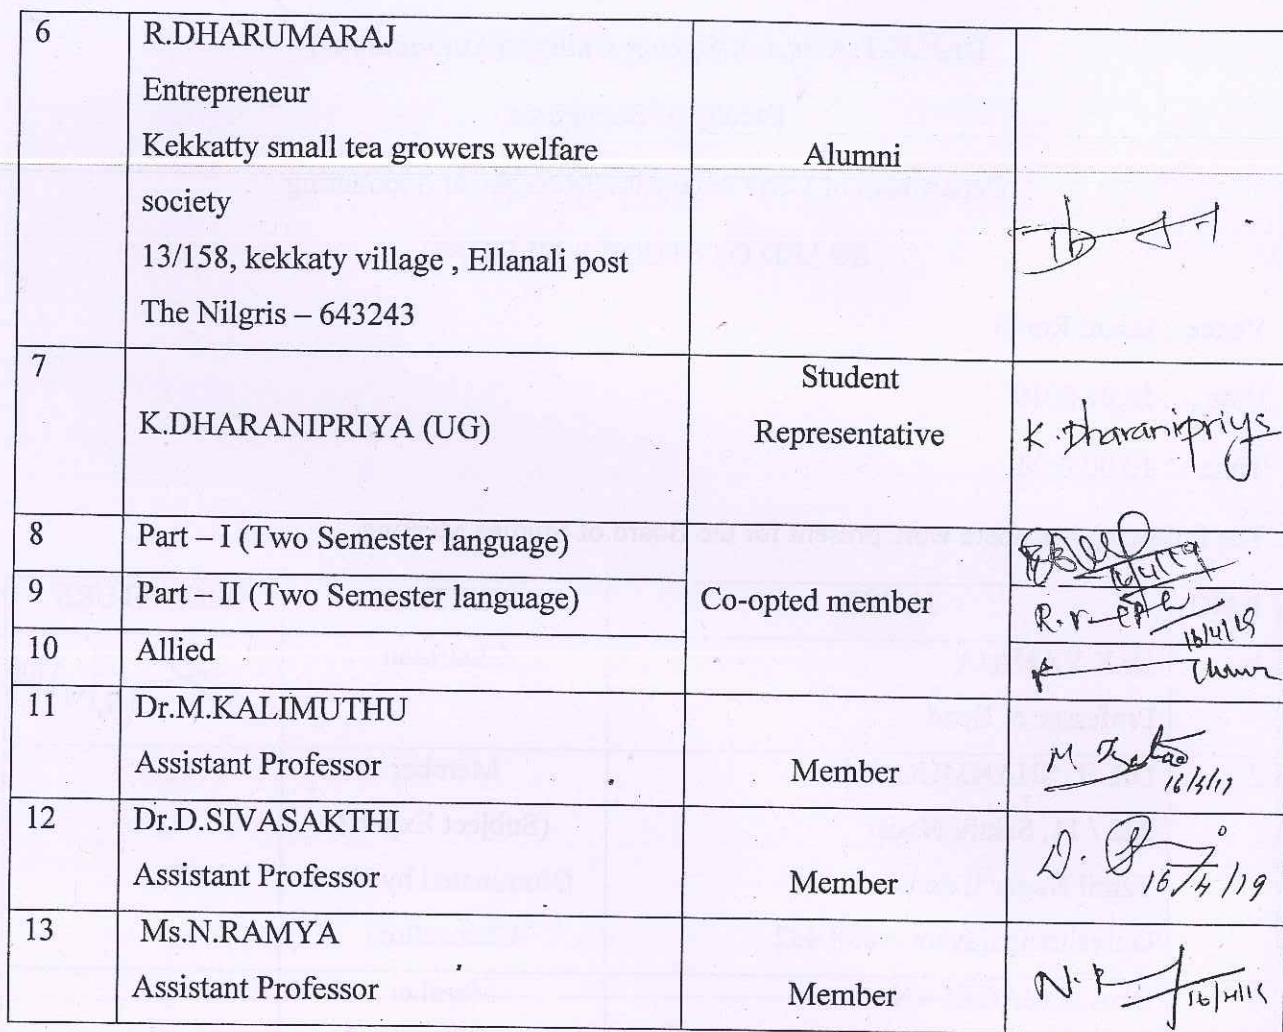 6
R.DHARUMARAJ
Entrepreneur
Kekkatty small tea growers welfare
society
13/158, kekkaty village , Ellanali post
The Nilgris – 643243
Alumni
7
K.DHARANIPRIYA (UG)
Student
Representative
K.Dharanipriya
8
Part – I (Two Semester language)
16/4/19
9
Part – II (Two Semester language)
Co-opted member
16/4/19
10
Allied
11
Dr.M.KALIMUTHU
Assistant Professor
Member
16/4/19
12
Dr.D.SIVASAKTHI
Assistant Professor
Member
16/4/19
13
Ms.N.RAMYA
Assistant Professor
Member